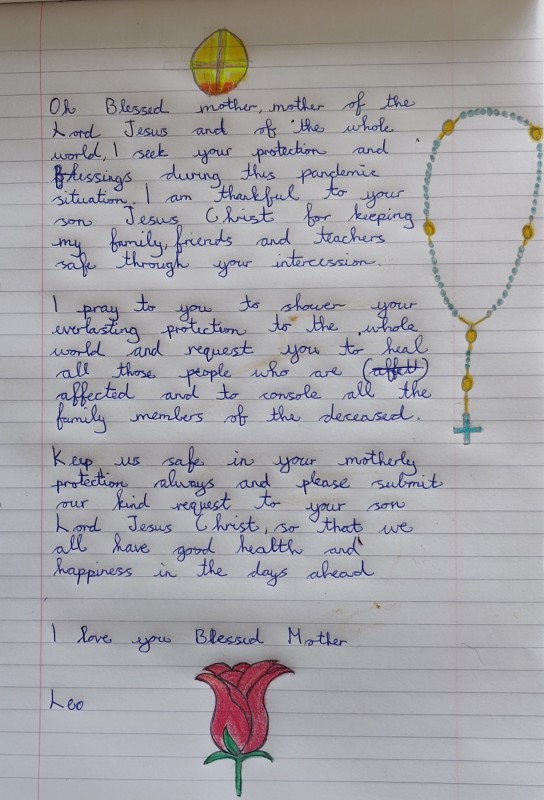 Oh Blessed mother, mother of the
Lord Jesus and of the whole
world, I seek your protection and
Blessings during this pandemic
situation. I am thankful to your
son Jesus Christ for keeping
my family, friends and teachers
safe through your intercession.
I pray to you to shower your
everlasting protection to the whole
world and request you to heal
all those people who are
affected and to console all the
family members of the deceased.
Keep us safe in your motherly
protection always and please submit
our kind request to your son
Lord Jesus Christ, so that we
all have good health and
happiness in the days ahead
I love you Blessed Mother
Leo